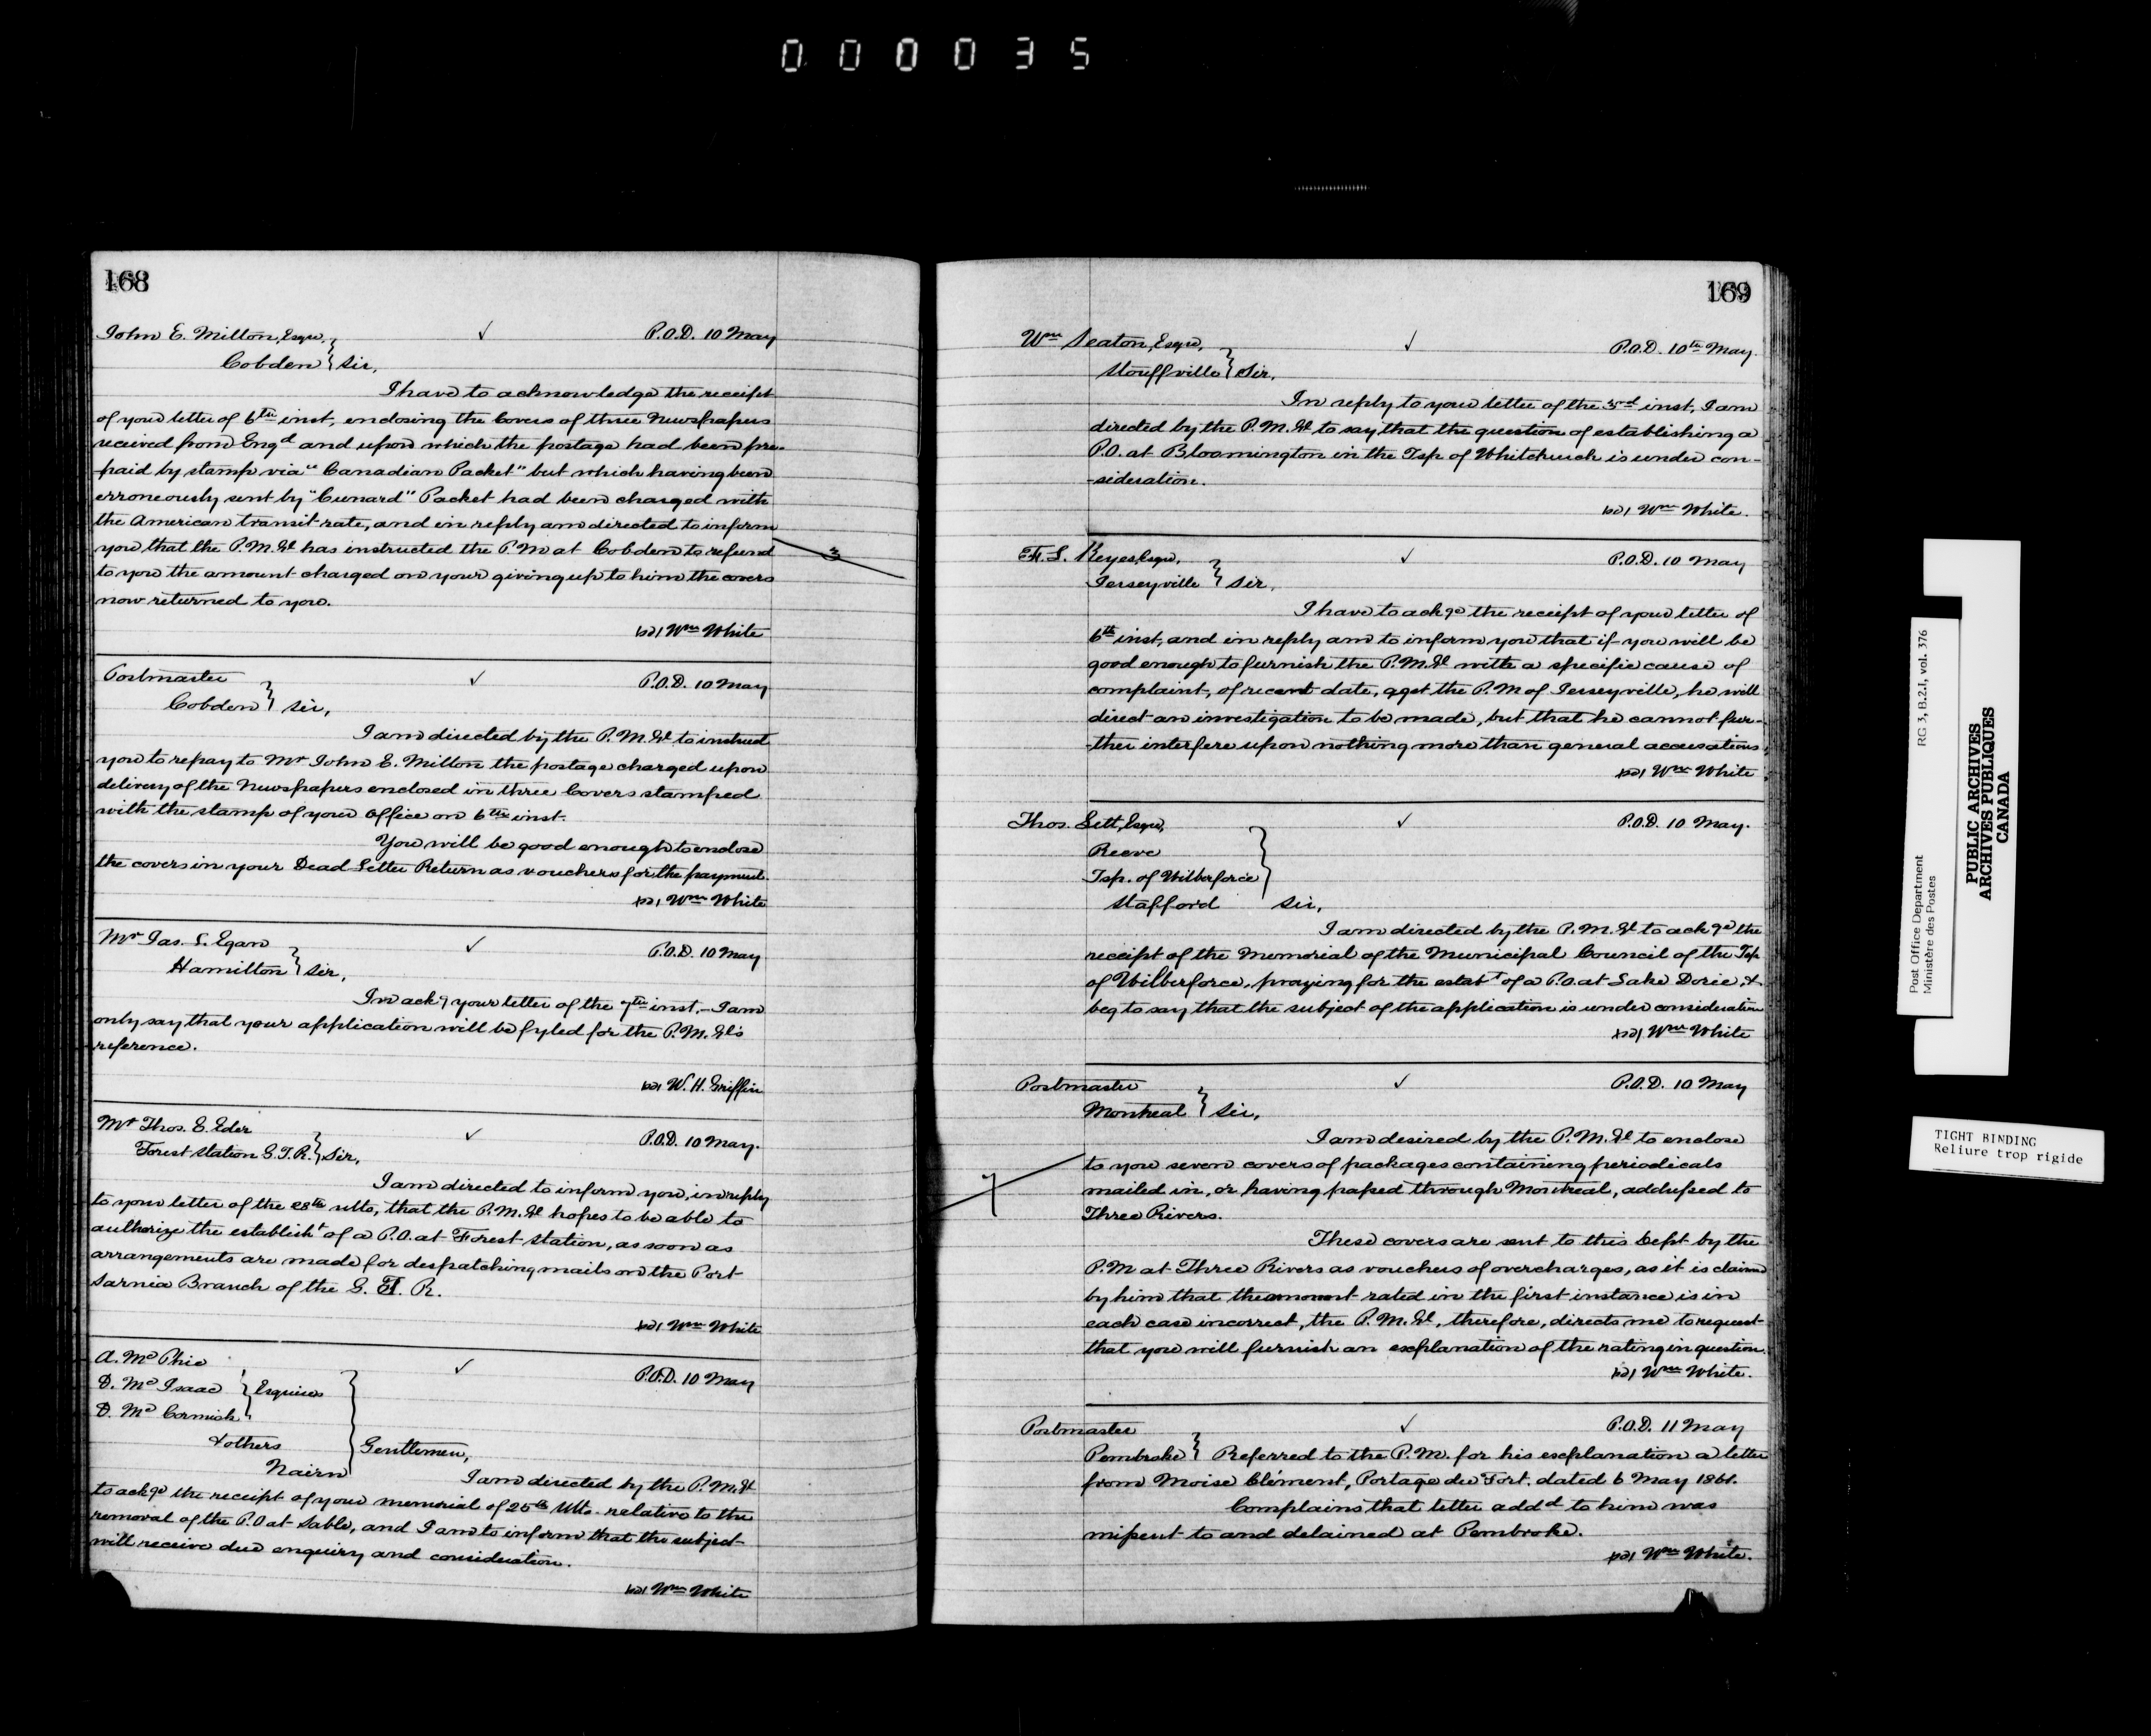 000035
168
John E. Milton, Esqre, ✓ P.O.D. 10 May
Cobden } Sir,
I have to acknowledge the receipt
of your letter of 6th inst, enclosing the Covers of three Newspapers
received from Engd and upon which the postage had been pre-
paid by stamp via "Canadian Packet" but which having been
erroneously sent by "Cunard" Packet had been charged with
the American transit rate, and in reply am directed to inform
you that the P.M.Gl has instructed the P.M at Cobden to refund
to you the amount charged on your giving up to him the covers
now returned to you.
3
Wm White
Postmaster ✓ P.O.D. 10 May
Cobden } Sir,
I am directed by the P.M.Gl to instruct
you to repay to Mr John E. Milton the postage charged upon
delivery of the Newspapers enclosed in three Covers stamped
with the stamp of your Office on 6th inst.
You will be good enough to enclose
the covers in your Dead Letter Return as vouchers for the payment.
Wm White
Mr Jas. S. Egan ✓ P.O.D. 10 May
Hamilton } Sir,
In ackg your letter of the 7th inst, - I am
only say that your application will be fyled for the P.M.Gl's
reference.
W. H. Griffin
Mr Thos. E. Eder ✓ P.O.D. 10 May.
Forest Station G.T.R. } Sir,
I am directed to inform you, in reply
to your letter of the 28th ulto, that the P.M.Gl hopes to be able to
authorize the establisht of a P.O. at Forest Station, as soon as
arrangements are made for despatching mails on the Port
Sarnia Branch of the G. T. R.
Wm White
A. Mc Phie ✓ P.O.D. 10 May
D. Mc Isaac } Esquires
D. Mc Cormick
& others } Gentlemen,
Nairn
I am directed by the P.M.Gl
to ackge the receipt of your memorial of 25th Ulto. relative to the
removal of the P.O at Sable, and I am to inform that the subject
will receive due enquiry and consideration.
Wm White
169
Wm Seaton, Esqre, ✓ P.O.D. 10th May.
Stouffville } Sir,
In reply to your letter of the 3rd inst, I am
directed by the P.M.Gl to say that the question of establishing a
P.O. at Bloomington in the Tsp. of Whitchurch is under con-
-sideration.
Wm White.
S. Keyes, Esqre, ✓ P.O.D. 10 May
Jerseyville } Sir,
I have to ackge the receipt of your letter of
6th inst, and in reply am to inform you that if you will be
good enough to furnish the P.M.Gl with a specific cause of
complaint, of recent date, agst the P.M of Jerseyville, he will
direct an investigation to be made, but that he cannot fur-
-ther interfere upon nothing more than general accusations.
Wm White
Thos. Lett, Esqre, ✓ P.O.D. 10 May.
Reeve
Tsp. of Wilberforce }
Stafford Sir,
I am directed by the P.M.Gl to ackge the
receipt of the Memorial of the Municipal Council of the Tsp
of Wilberforce, praying for the estabt of a P.O. at Lake Dorie, &
beg to say that the subject of the application is under consideration
Wm White
Postmaster ✓ P.O.D. 10 May
Montreal } Sir,
I am desired by the P.M.Gl to enclose
to you seven covers of packages containing periodicals
mailed in, or having passed through Montreal, addressed to
Three Rivers.
7
These covers are sent to this Dept by the
P.M at Three Rivers as vouchers of overcharges, as it is claimed
by him that the amount rated in the first instance is in
each case incorrect, the P.M.Gl, therefore, directs me to request
that you will furnish an explanation of the rating in question.
Wm White.
Postmaster ✓ P.O.D. 11 May
Pembroke } Referred to the P.M. for his explanation a letter
from Moise Clément, Portage du Fort. dated 6 May 1861.
Complains that letter addd to him was
missent to and delained at Pembroke.
Wm White.
Post Office Department RG 3, B.2.1, vol. 376
Ministère des Postes
PUBLIC ARCHIVES
ARCHIVES PUBLIQUES
CANADA
TIGHT BINDING
Reliure trop rigide